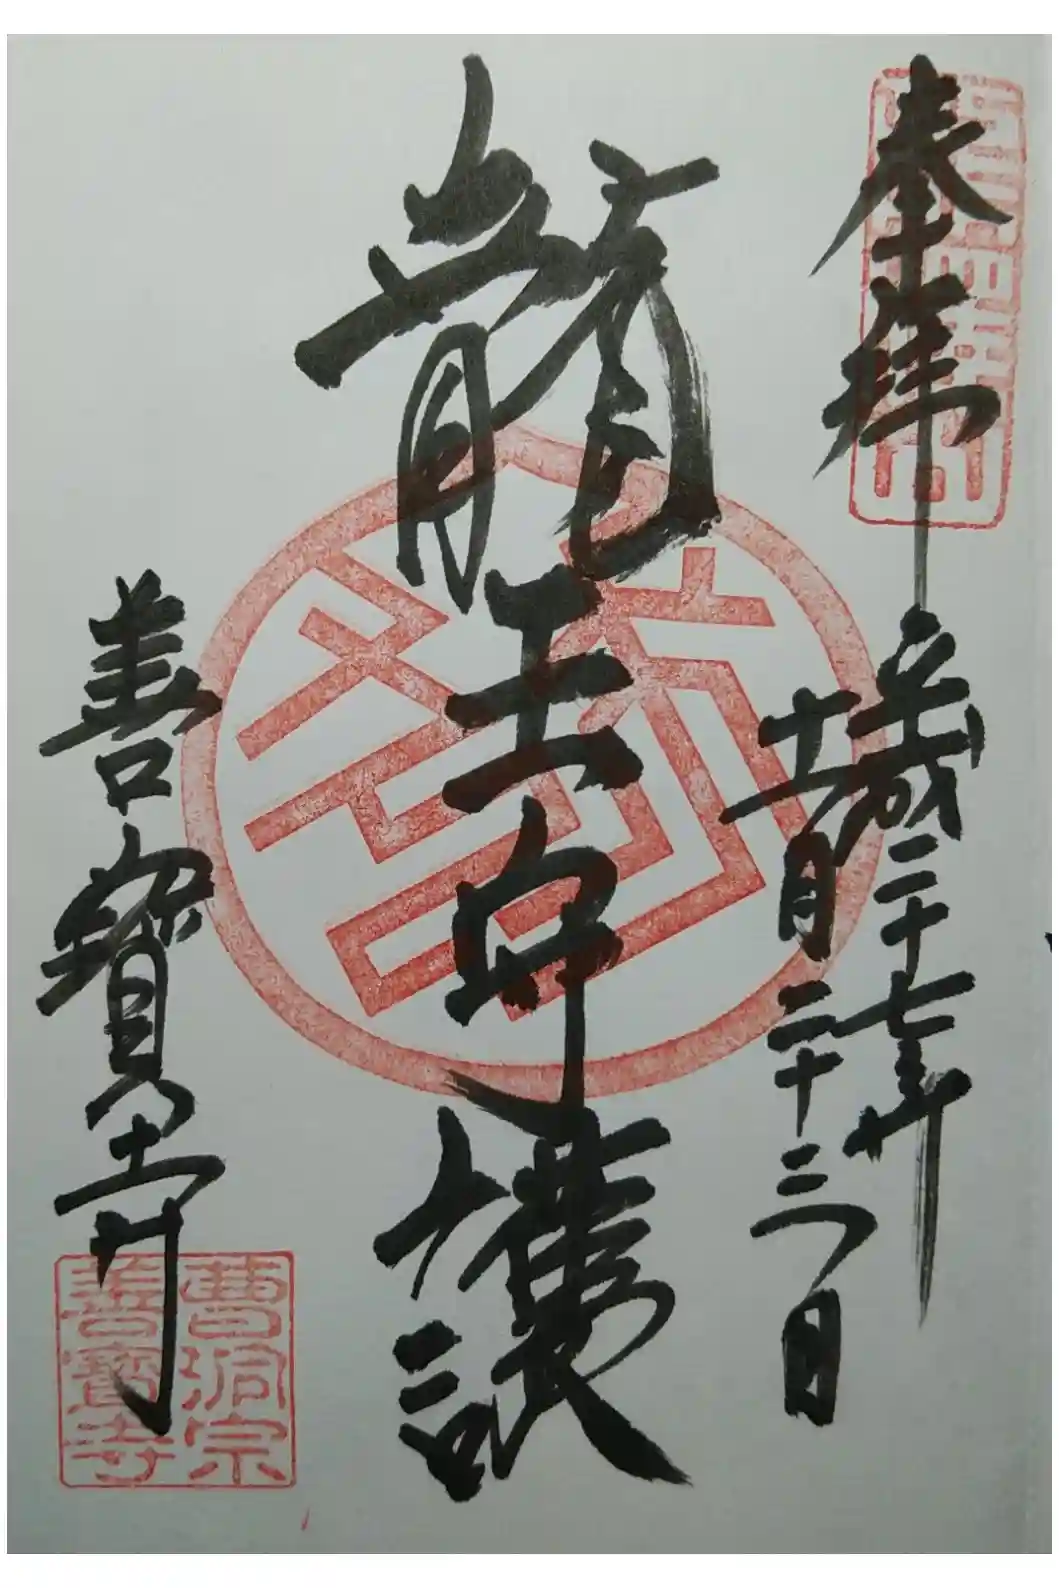 奉拝
平成二十七年
十一月二十三日
龍王尊護
善寳寺
曹洞宗
善寳寺